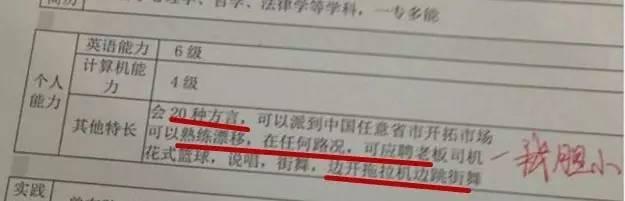 学、法律学等学科，一专多能
个人能力
英语能力 6级
计算机能力 4级
其他特长
会20种方言，可以派到中国任意省市开拓市场
可以熟练漂移，在任何路况，可应聘老板司机
花式篮球，说唱，街舞，边开拖拉机边跳街舞
我胆小
实践